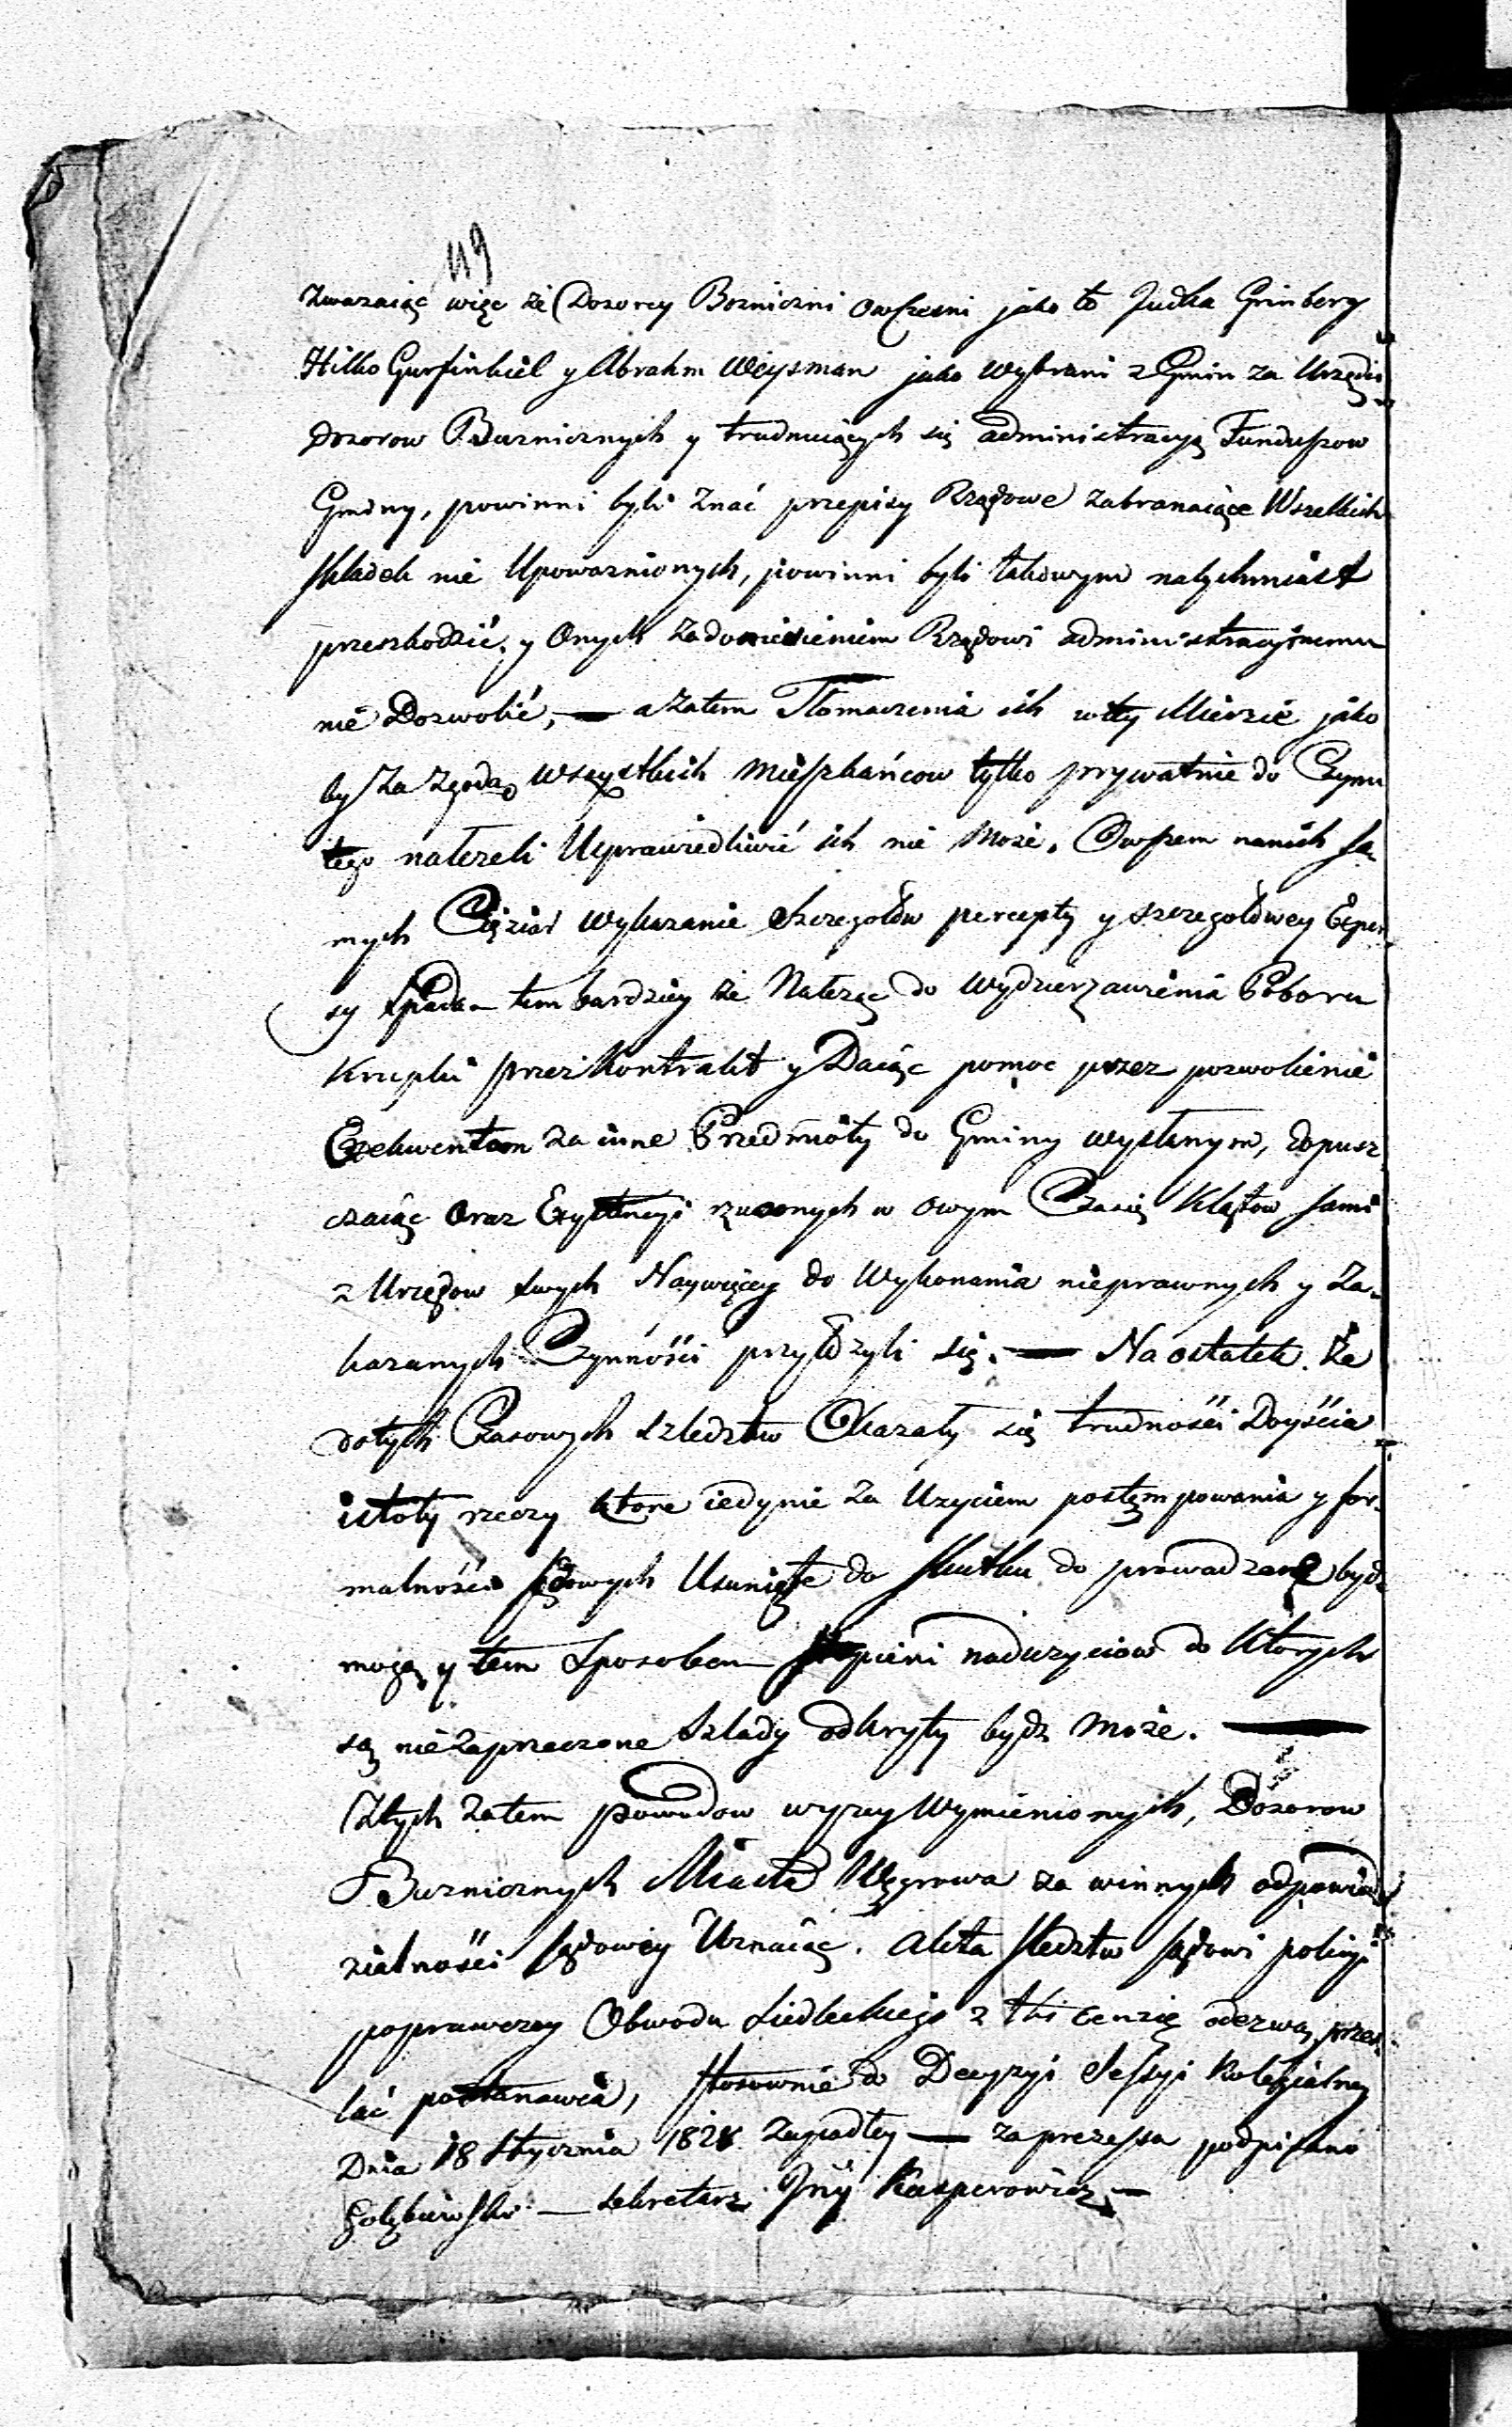 119
Zwazaiąc więc że Dozorcy Bozniczni owcześni jako to Judka Grinberg
Hilko Gurfinkiel y Abrahm Weysman jako wybrani z Gmin za Urzędu
Dozorow Buzniznych y trudniących się administracyą Funduszow
Gminy, powinni byli znać przepisy Rządowe zabraniaiące Wszelkich
składek nie Upowaznionych, powinni byli takowym natychmiast
przeszkodzić, y Onych zadoniesieniem Rządowi administracyinemu
nie Dozwolić, — a zatem Tłomaczenia ich w tey Mierzie jako
by za zgodą wszystkich Mieszkańcow tylko prywatnie do Czynu
tego należeli Usprawiedliwić ich nie Może. Owszem na nich sa-
mych Ciężar wykazanie Szczegołow percepty y szczegołowey Expen
sy spada tem bardziey że Należąc do wydzierzawienia Poboru
Krupki przez Kontrakt y Daiąc pomoc przez pozwolienie
Exekwentom za inne Przedmioty do Gminy wysłanym, dopusz
czaiąc oraz Exystencyi rzuconych w owym Czasie Klątow sami
z Urzędow swych Naywięcey do Wykonania nieprawnych y Za-
kazanych Czynności przyłożyli się. — Na ostatek. że
dotych Czasowych szledztw Okazały się trudności Doyścia
istoty rzeczy ktore iedynie za Uzyciem postęmpowania y for-
malności sądowych Usunięte do skutku do prowadzone bydź
mogą y tem Sposobem stopień nadużyciow do ktorych
są niezaprzeczone szlady odkryty bydz może. —
Ztych zatem powodow wyzey Wymienionych, Dozorow
Buznicznych Miasta Węgrowa za winnych odpowied
zialności sądowey Uznaiąc. Akta śledztw sądowi policyi
poprawczey Obwodu Siedleckiego z odezwą przes-
łać postanawia, stosownie do Decyzyi Sessyi Kolegialney
Dnia 18 Stycznia 182 Zapadłey — za prezesa podpisano
Gołębiowski — sekretarz Kasperowicz —